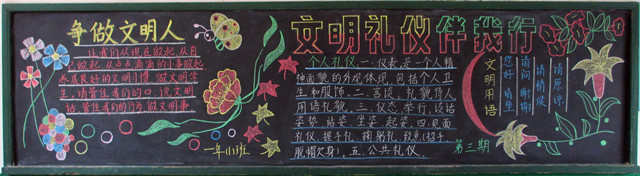 争做文明人
让我们从现在做起,从自
己做起,从点点滴滴的小事做起
养成良好的文明习惯,做文明学
生,请管住我们的口,说文明
话,管住我们的行为,做文明事
一年(1)班
文明礼仪伴我行
个人礼仪:一、仪表:是一个人精
神面貌的外观体现,包括个人卫
生和服饰。二、言谈:礼貌待人
用语礼貌。三、仪态:举行,谈话
姿势,站姿,坐姿,起姿。四、见面
礼仪:握手礼、鞠躬礼、致意(招手,
脱帽欠身)。五、公共礼仪。
文明用语
您好 请坐
请问 谢谢
请稍候
请原谅
第三期